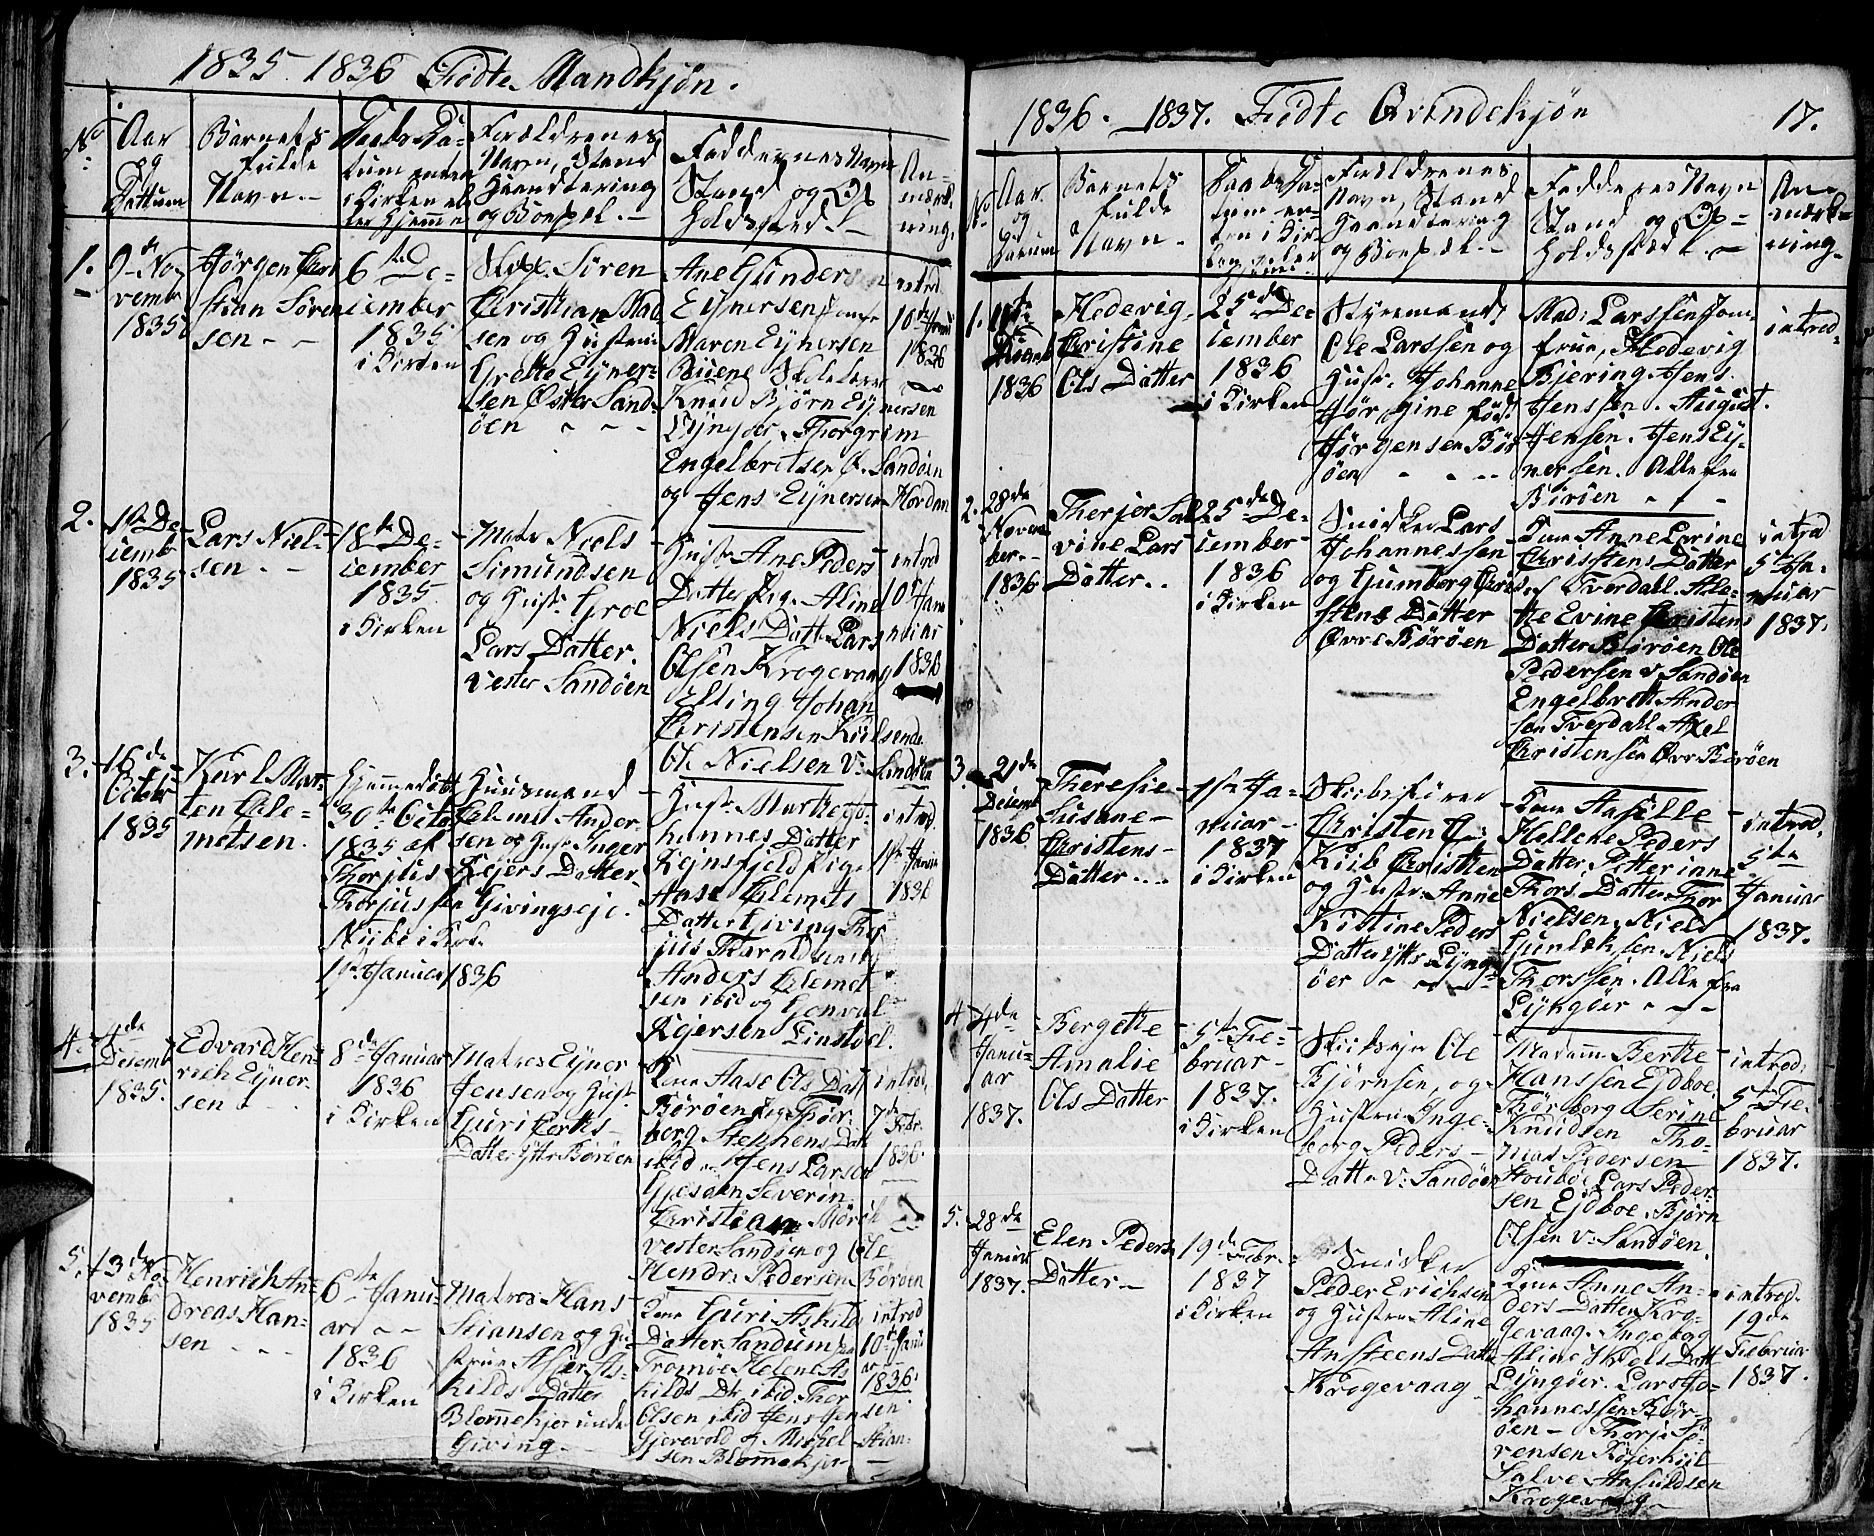 1835. 1836 Fødte Mandkjøn.
No
Aar og Dattum
Barnets fulde Navn.
Daabs Datum enten i Kirken eller Hjemme
Forældrenes Navn, Stand Haandtering og Boepæl.
Faddernes Navn Stand og Opholdssted.
Anmærkning.
1.
9de November 1835
Jørgen Christian Sørensen
6te December 1835 i Kirken
Søren Christian Madsen og Hustrue Grethe Eynersen Øster Sandøen
Ane Gunder Eynersen
Maren Eynersen
Knud Bjørn Eynersen
Lyngøer, Thorgrim
Engelbritsen Ø. Sandøen
og Jens Eynersen Nordan
introd
10de Januar
1836
2.
1ste December 1835
Lars Nielsen
18de December 1835 i Kirken
Matr. Niels
Simundsen
og Hustr. Groe
Lars Datter.
Vester Sandøen
Hustr. Ane Peders
Datter Pig. Aline
Niels Datt. Lars
Olsen Krogevaag
Elling Johan
Christensen
Ole Nielsen V. Sandøen
introd
10de Januar
1836
3.
16de October 1835
Karl Marten Clemetsen.
Hjemmedøbt
30te Octob.
1835 af
Thorjus
Thorjussen
i Kirk.
1ste Januar 1836
Huusmand
Clemet Andersen og Hustr. Inger
Rejers Datter
Givingseje.
Hustr. Marthe Johannes Datter
Pige
Aase Clemets
Datter Giving Thorjus Tharaldsen
Anders Clemetsen ibid og Gonval
Rejersen Linstøl.
introd.
1ste Januar
1836
4.
4de Desemb 1835.
Edvard Henrich Eynersen
8de Januar
1836
i Kirken
Matros Eyner
Jensen og Hustr.
Guri Eriks
Datter Ytre Børøen
Kone Aase Ols Datt
Børøen Pige Thorborg Stephens Datt
ibid. Jens Larsen
Gjesøen Severin
Christian Mørch
Vester Sandøen og Ole
Hendr. Pedersen Børøen
introd.
7de Febr.
1836.
5.
13de November 1835
Henrich Andreas Hansen
6te Januar
1836
i Kirken
Matros Hans
Stiansen og Hustrue Aser Askilds Datter
Blommekjer under
Giving.
Kone Guri Askilds
Datter Sandum
Tromøe Helene Askilds Dt. ibid Thor
Olsen ibid Jens Jensen
Gjerevold og Michel Stiansen Blommekjer
introd
10de Januar
1836.
1836. 1837. Fødte Qvindekjøn
17.
No
Aar og Datum
Barnets fulde Navn.
Daabs Datum enten i Kirken eller Hjemme
Forældrenes Navn, Stand Haandtering og Boepæl.
Faddernes Navn Stand og Opholdssted
Anmærkning.
1.
1836
Hedevig
Christine
Ols Datter
25de December
1836
i Kirken
Styremand
Ole Larssen og
Hustr. Johanne
Jørgine født
Jørgensen Børøen
Mad: Larssen Jomfrue, Hedevig
Bjering. Jens
Jenssen. August
Jensen. Jens Eynersen. Alle fra
Børøen
introd.
2.
28de November
1836
Therjer Salvine Lars
Datter
25de December
1836
i Kirken
Lars
Johannessen
og Gumborg Christens Datter
Øvre Børøen
Kone Anne Lovine
Christens Datter
Tverdahl. Alette Evine Christens
Datter Børøen Ole
Pedersen V. Sandøen
Engelbreth Andersen Tverdahl. Axel
Christensen Øvr. Børøen
introd
5te Januar
1837.
3.
21de Decemb
1836
Theresie
Susane
Christens
Datter
1ste Januar
1837
i Kirken
Skibsfører
Christen
og Hustr. Anne
Kistine Peders
Datter Ytr. Lyngøer
Kone
Hellene Peders
Datter, Petterinne
Thors Datter Thor
Nielsen. Niels
Gunlaksen. Niels
Thorssen. Alle fra
Lyngøer
introd.
5te
Januar
1837.
4.
4de Januar
1837.
Bergette
Amalie
Ols Datter
5te Februar
1837.
i Kirken
Ole
Bjørnsen, og
Hustrue Ingeborg Peders
Datter V. Sandøen
Madam Berthe
Hanssen Eydboe,
Thorborg Serine
Knudsen Thomas Pedersen
Lars Pedersen Eydboe. Bjørn
Olsen V. Sandøen.
introd.
5te Februar
1837.
5.
28de
Januar
1837.
Elen Peders
Datter
19de Febr.
1837
i Kirken
Peder Erichsen
og Hustrue Aline
Ansteens Datter
Krogevaag
Kone Anne Anders Datter Krogevaag. Ingeborg
Aline Niels Datt
Lyngøer. Lars Johannessen Børøen
Thorje Sørensen
Salve
Krogevaag
introd.
19de
Februar
1837.